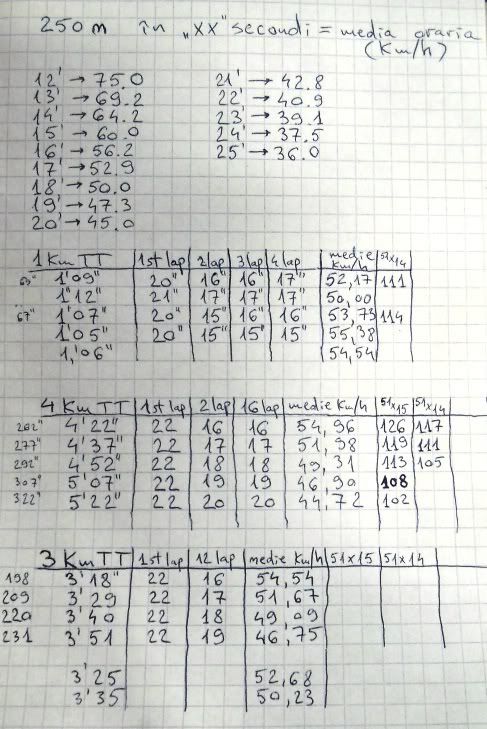 250 m în "XX" secondi = media oraria
(Km/h)
12' → 75.0
13' → 69.2
14' → 64.2
15' → 60.0
16' → 56.2
17' → 52.9
18' → 50.0
19' → 47.3
20' → 45.0
21' → 42.8
22' → 40.9
23' → 39.1
24' → 37.5
25' → 36.0
1 Km TT 1st lap 2 lap 3 lap 4 lap medie Km/h 51x14
1'09" 20" 16" 16" 17" 52,17 111
1'12" 21" 17" 17" 17" 50,00
67" 1'07" 20" 15" 16" 16" 53,73 114
1'05" 20" 15" 15" 15" 55,38
1,'06" 54,54
4 Km TT 1st lap 2 lap 16 lap medie Km/h 51x15 51x14
262" 4'22" 22 16 16 54,96 126 117
277" 4'37" 22 17 17 51,98 119 111
292" 4'52" 22 18 18 49,31 113 105
307" 5'07" 22 19 19 46,90 108
322" 5'22" 22 20 20 44,72 102
3 Km TT 1st lap 12 lap medie Km/h 51x15 51x14
198 3'18" 22 16 54,54
209 3'29 22 17 51,67
220 3'40 22 18 49,09
231 3'51 22 19 46,75
3'25 52,68
3'35 50,23